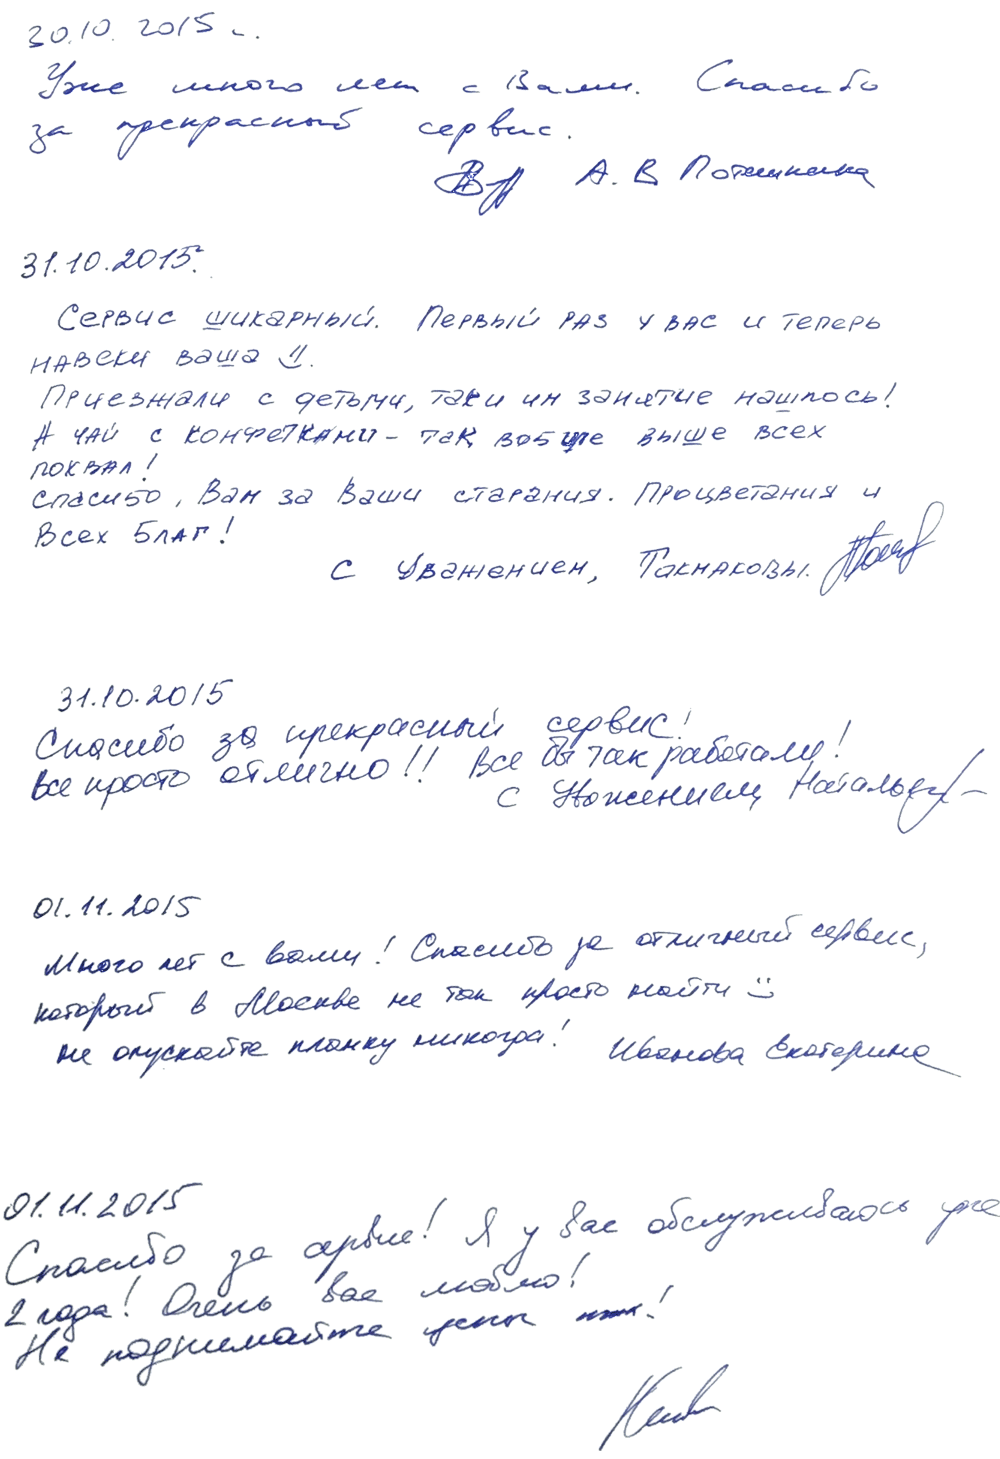 30.10.2015 г.
Уже много лет с Вами. Спасибо
за прекрасный сервис.
А.В Поташкина
31.10.2015г.
Сервис шикарный. Первый раз у вас и теперь
навеки ваша
Приезжали с детьми, так и им занятие нашлось!
А чай с конфетками - так вобще выше всех
похвал!
Спасибо, Вам за Ваши старания. Процветания и
Всех Благ!
С Уважением,
31.10.2015
Спасибо за прекрасный сервис!
Все просто отлично!! Все бы так работали!
С Уважением, Наталья
01.11.2015
Много лет с вами! Спасибо за отличный сервис,
который в Москве не так просто найти
Не опускайте планку никогда! Иванова Екатерина
01.11.2015
Спасибо за сервис! Я у вас обслуживаюсь уже
2 года! Очень вас люблю!
Не поднимайте цены !